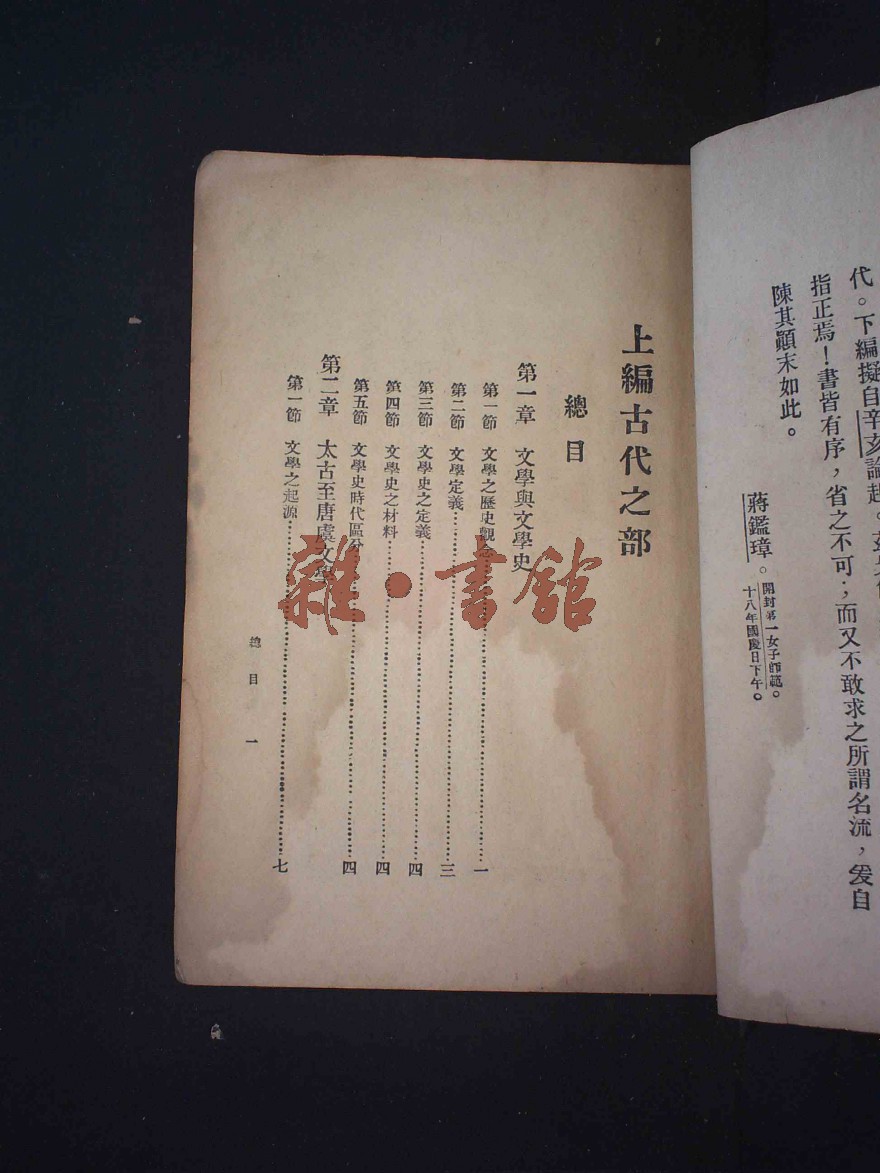 代。下編擬自辛亥論起。
指正焉！書皆有序，省之不可；而又不敢求之所謂名流，爰自
陳其顚末如此。
蔣鑑璋。開封第一女子師範。
十八年國慶日下午。
上編古代之部
總目
第一章 文學與文學史
第一節 文學之歷史觀念……一
第二節 文學定義……三
第三節 文學史之定義……四
第四節 文學史之材料……四
第五節 文學史時代區分……四
第二章 太古至唐虞文學
第一節 文學之起源……七
總目 一
雜·書館